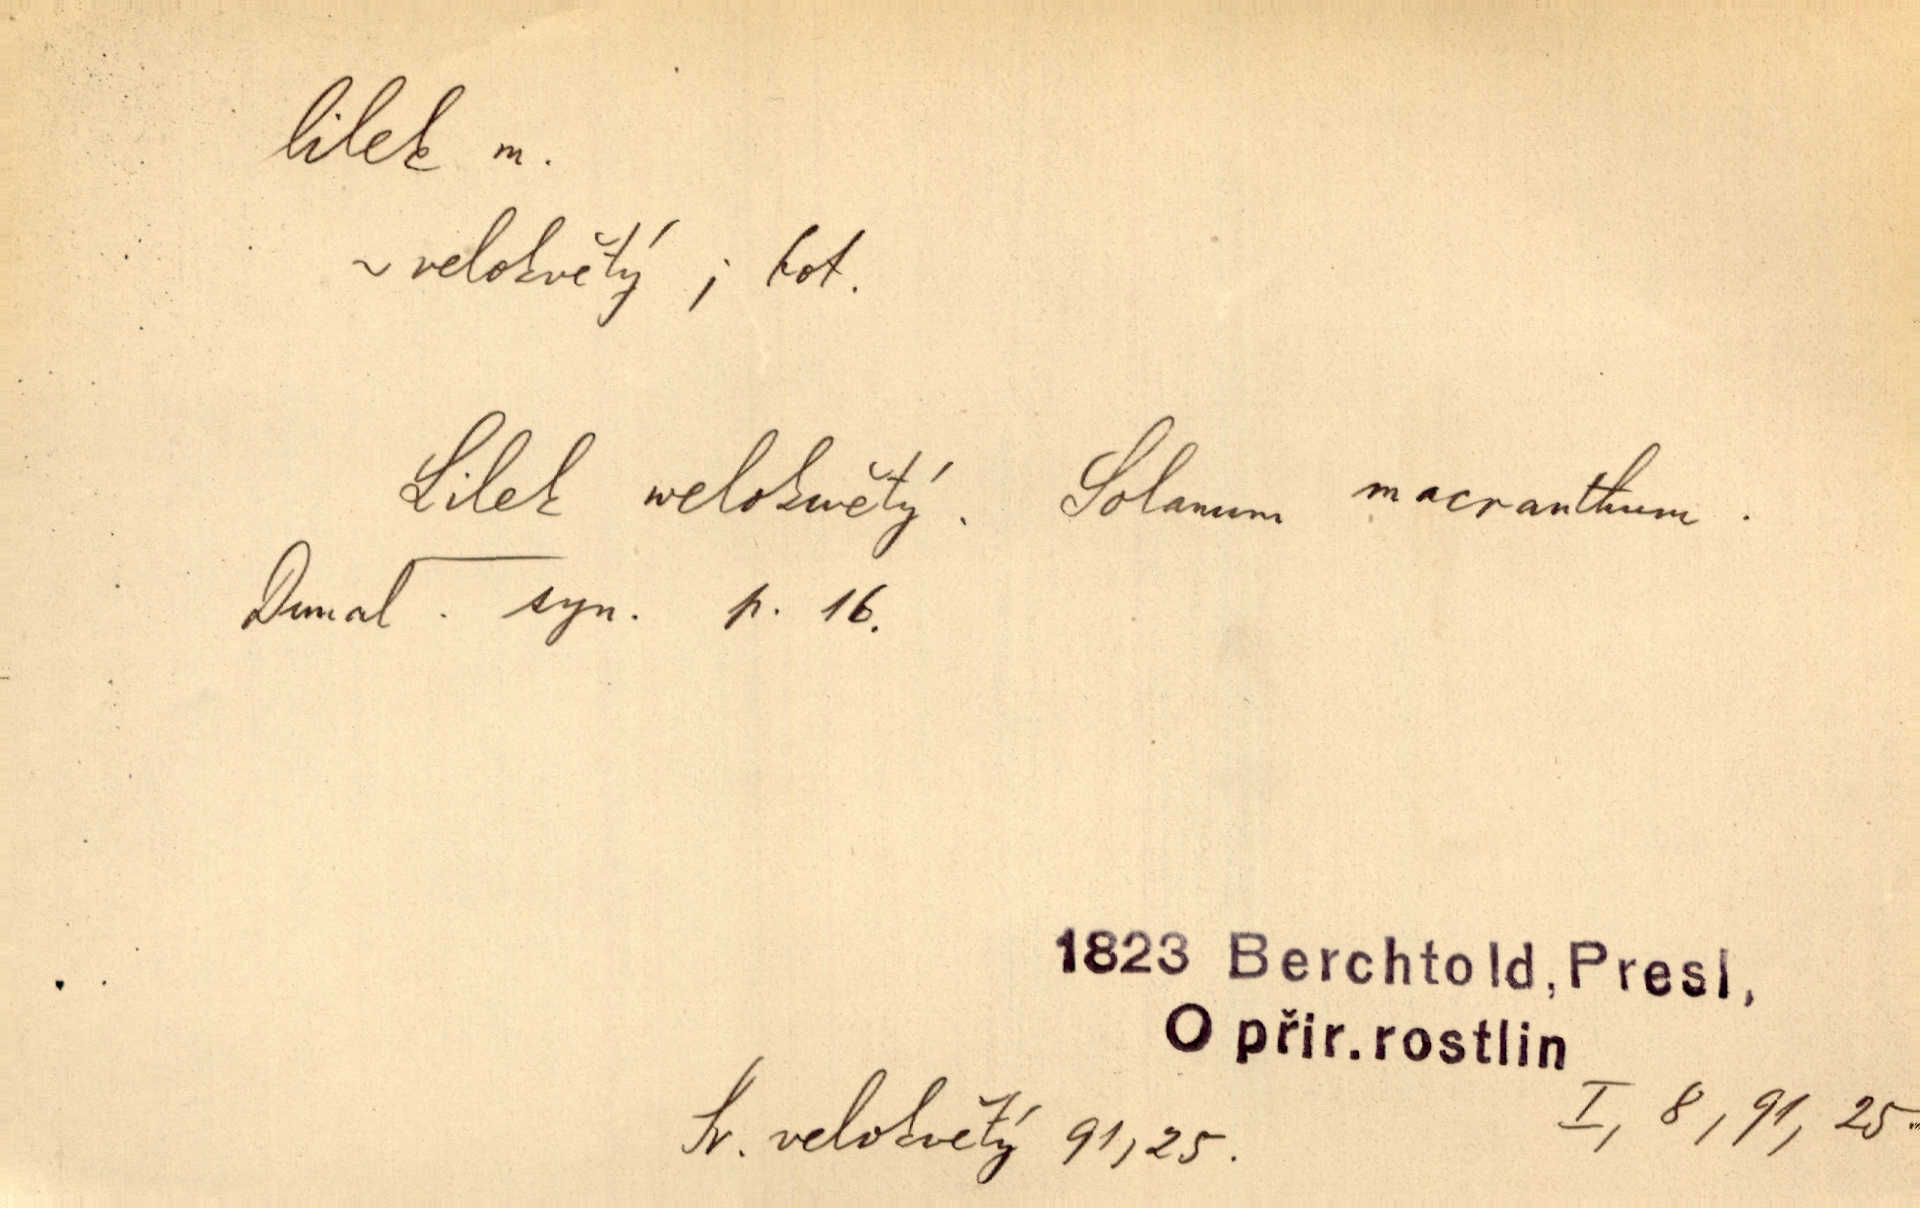 lilek m.
~ velokvětý ; bot.
Lilek welokwětý. Solanum macranthum.
Dunal. syn. p. 16.
1823 Berchtold, Presl,
O přir. rostlin
I, 8, 91, 25
Sr. velokvětý 91, 25.